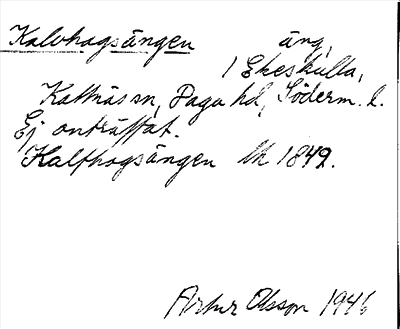 Kalvhagsängen äng,
1 Ekeskulla,
Kattnäs sn, Daga hd, Söderm. l.
Ej anträffat.
Kalfhagsängen lk 1849.
Artur Olsson 1946